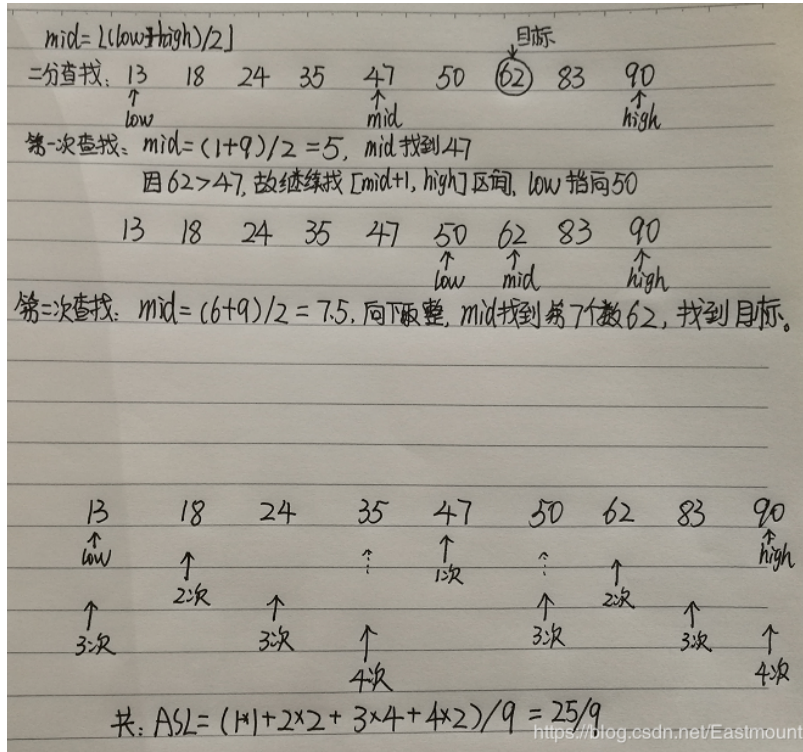 mid=⌊(low+high)/2⌋
目标
二分查找: 13 18 24 35 47 50 62 83 90
low mid high
第一次查找: mid=(1+9)/2=5, mid找到47
因62>47,故继续找[mid+1, high]区间, low指向50
13 18 24 35 47 50 62 83 90
low mid high
第二次查找: mid=(6+9)/2=7.5, 向下取整, mid找到第7个数62, 找到目标。
13 18 24 35 47 50 62 83 90
low 1次 high
2次 2次
3次 3次 3次 3次
4次 4次
共: ASL=(1*1+2×2+3×4+4×2)/9=25/9
https://blog.csdn.net/Eastmount